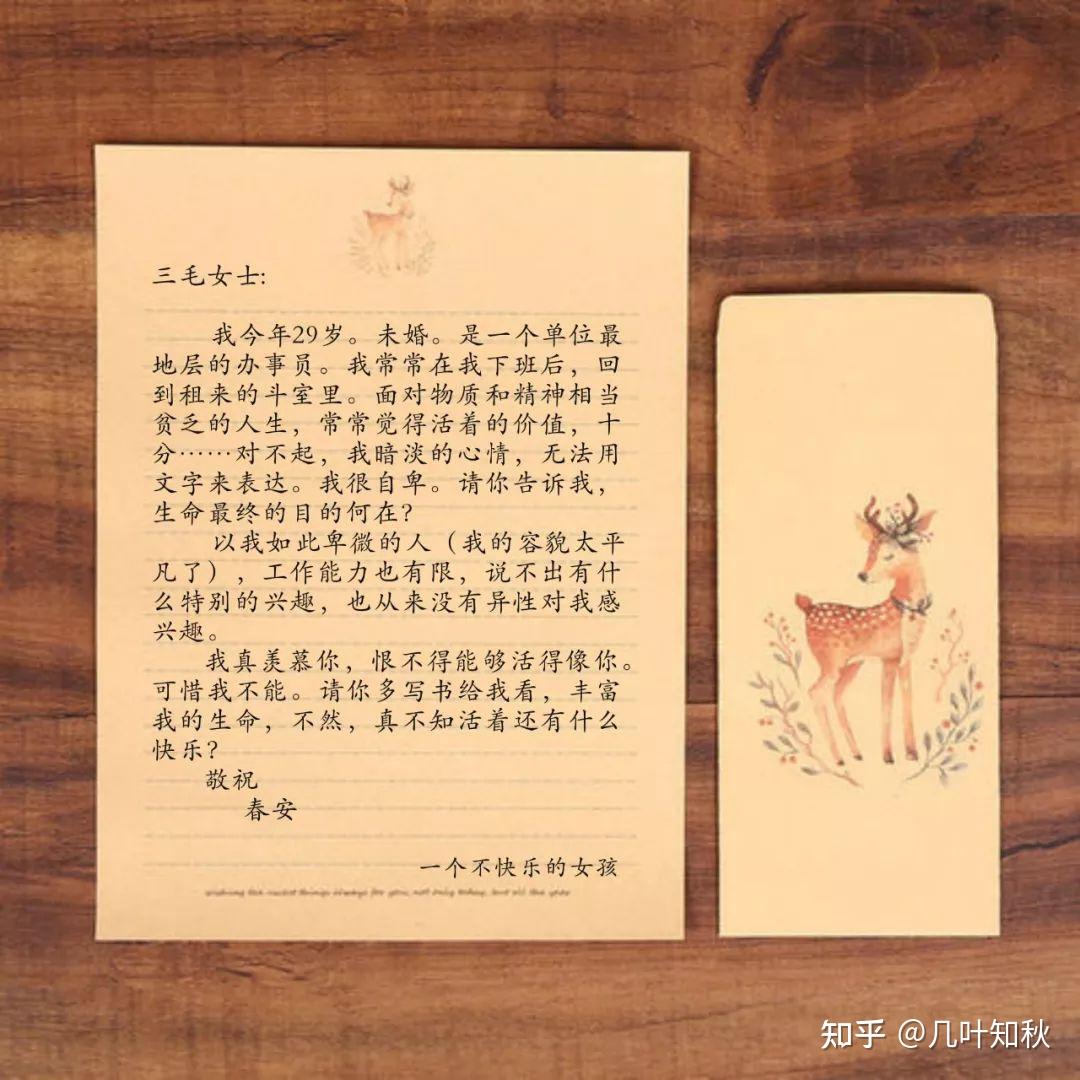 三毛女士:
我今年29岁。未婚。是一个单位最
地层的办事员。我常常在我下班后，回
到租来的斗室里。面对物质和精神相当
贫乏的人生，常常觉得活着的价值，十
分……对不起，我暗淡的心情，无法用
文字来表达。我很自卑。请你告诉我，
生命最终的目的何在？
以我如此卑微的人（我的容貌太平
凡了），工作能力也有限，说不出有什
么特别的兴趣，也从来没有异性对我感
兴趣。
我真羡慕你，恨不得能够活得像你。
可惜我不能。请你多写书给我看，丰富
我的生命，不然，真不知活着还有什么
快乐？
敬祝
春安
一个不快乐的女孩
知乎 @几叶知秋